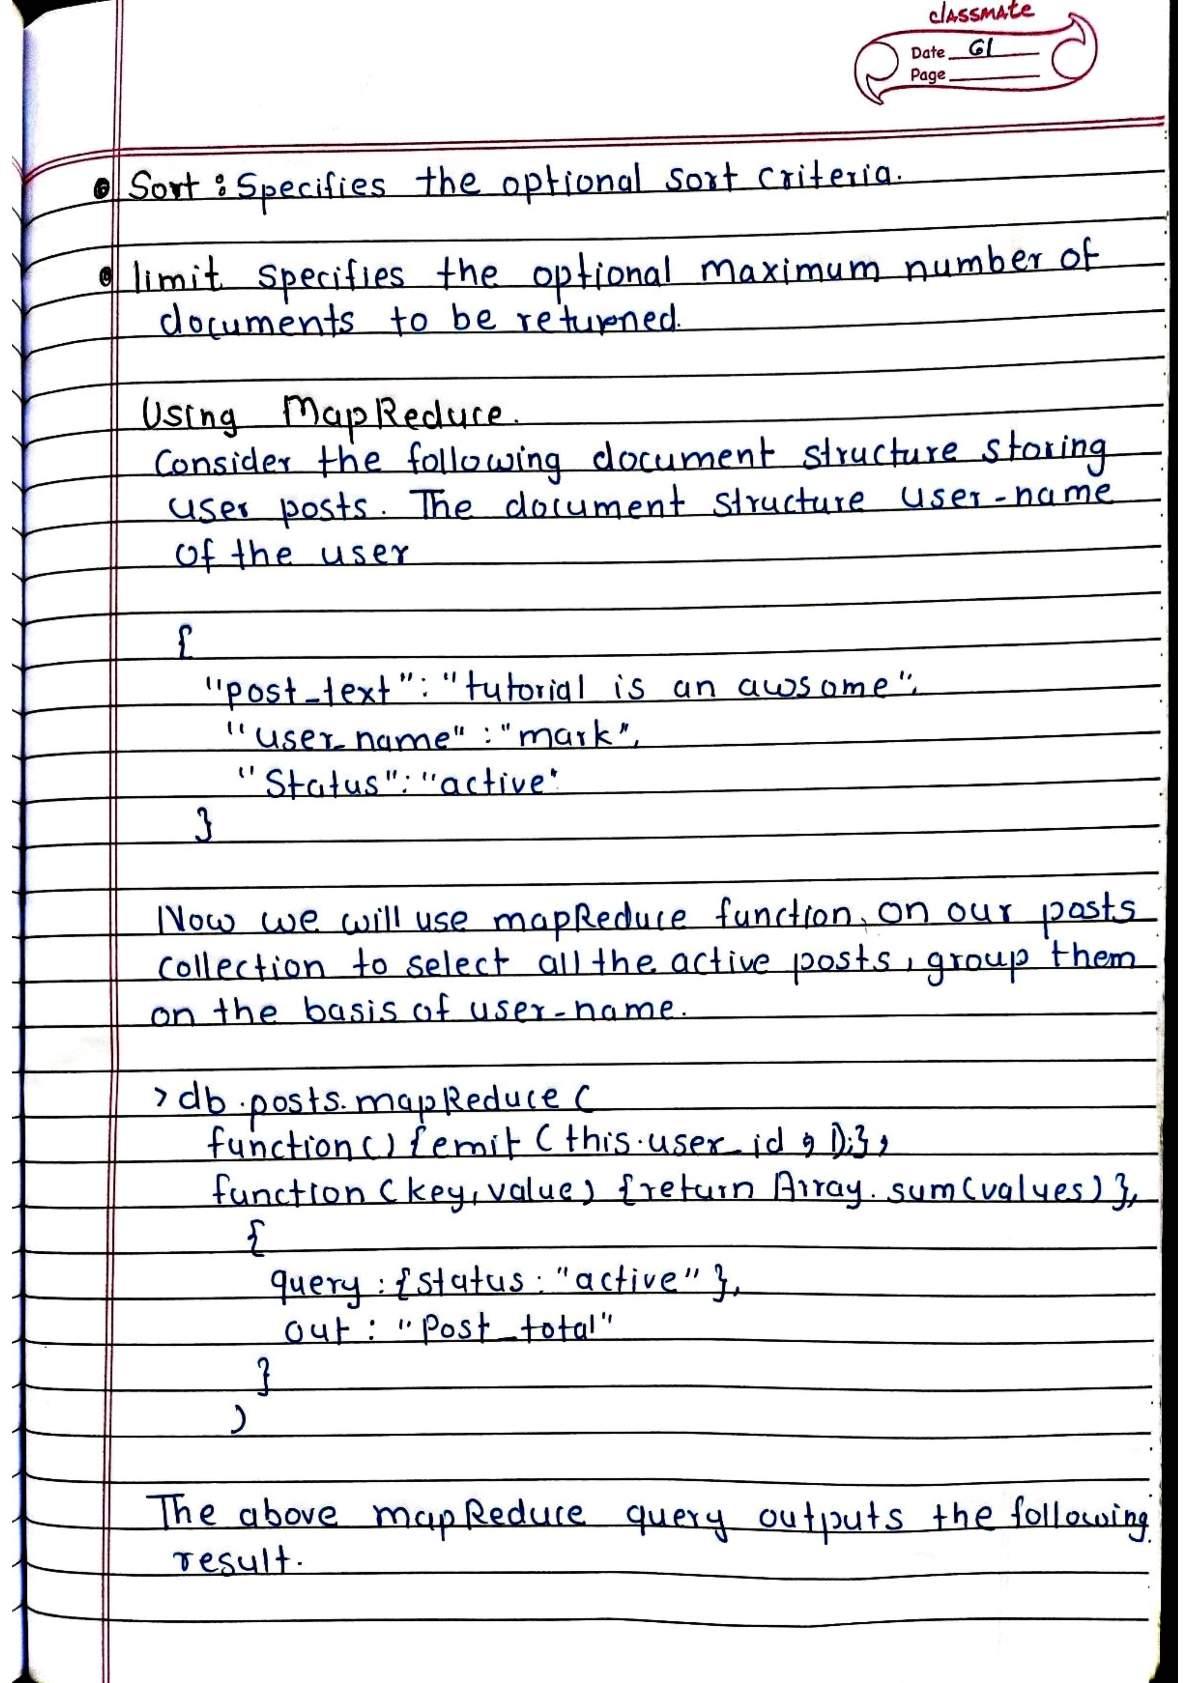 classmate
Date 61
Page
Sort : Specifies the optional sort criteria.
limit specifies the optional maximum number of
documents to be returned.
Using MapReduce.
Consider the following document structure storing
user posts. The document structure user-name
of the user
{
"post_text": "tutorial is an awsome",
"user_name" : "mark",
"Status": "active"
}
Now we will use mapReduce function, on our posts
collection to select all the active posts, group them
on the basis of user-name.
> db.posts.mapReduce (
function() {emit (this.user_id, 1);},
function (key, value) {return Array.sum(values)},
{
query : {status : "active"},
out : "Post_total"
}
)
The above mapReduce query outputs the following
result.